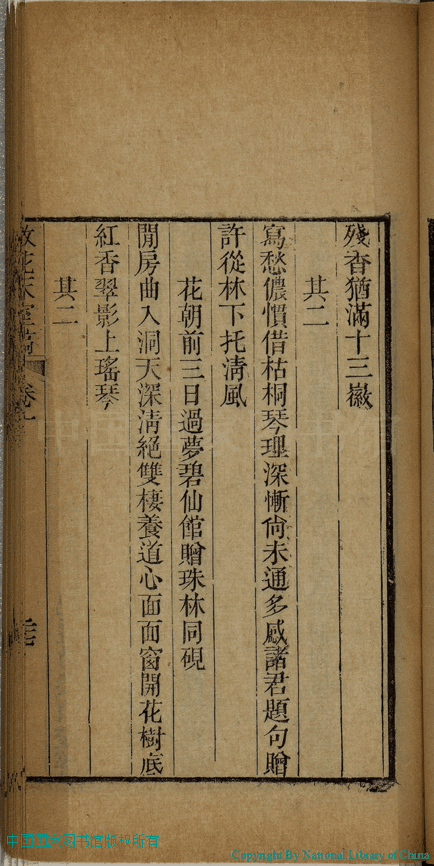 殘香猶滿十三徽
其二
寫愁儂慣借枯桐琴理深慚尙未通多感諸君題句贈
許從林下托淸風
花朝前三日過夢碧仙館贈珠林同硯
閒房曲入洞天深淸絕雙棲養道心面面窗開花樹底
紅香翠影上瑤琴
其二
Copyright By National Library of China